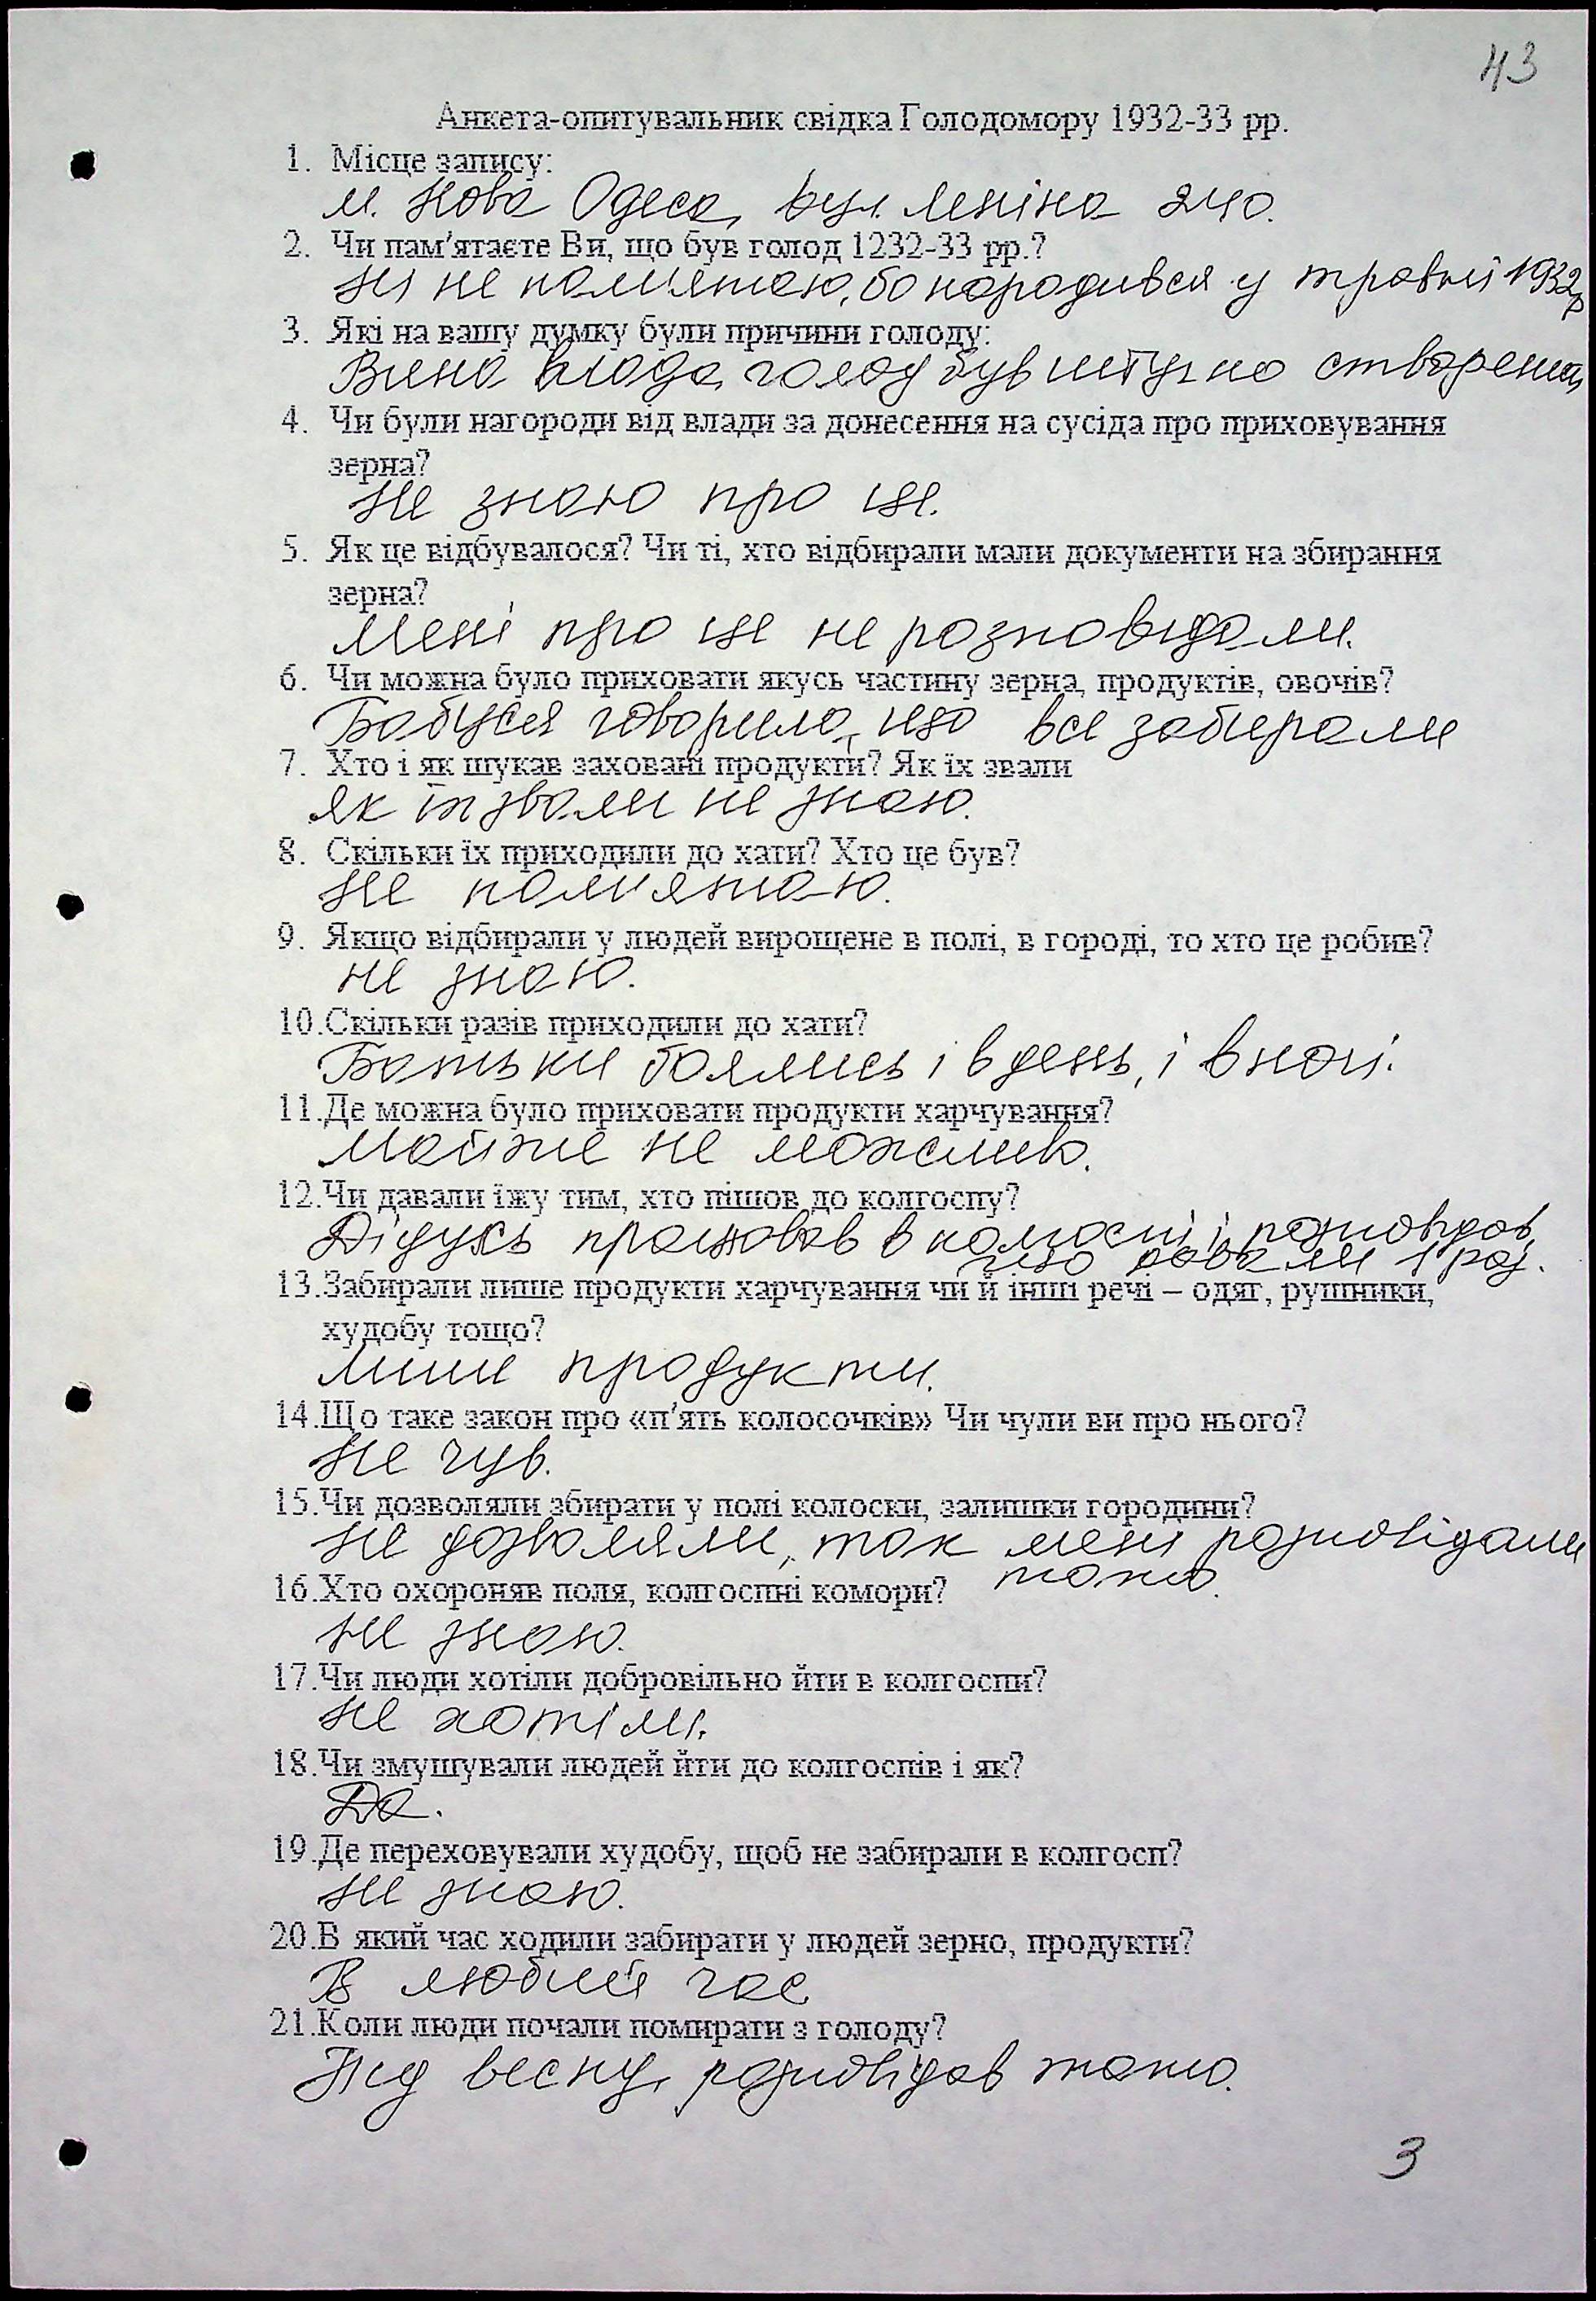 43
Анкета-опитувальник свідка Голодомору 1932-33 рр.
1. Місце запису:
м. Нова Одеса, вул. Леніна 240.
2. Чи пам'ятаєте Ви, що був голод 1232-33 рр.?
Ні не пам'ятаю, бо народився у травні 1932р
3. Які на вашу думку були причини голоду:
Вина влада, голод був штучно створений
4. Чи були нагороди від влади за донесення на сусіда про приховування
зерна?
Не знаю про це.
5. Як це відбувалося? Чи ті, хто відбирали мали документи на збирання
зерна?
Мені про це не розповідали.
6. Чи можна було приховати якусь частину зерна, продуктів, овочів?
Бабуся говорила, що все забирали
7. Хто і як шукав заховані продукти? Як їх звали
як їх звали не знаю.
8. Скільки їх приходили до хати? Хто це був?
Не пам'ятаю.
9. Якщо відбирали у людей вирощене в полі, в городі, то хто це робив?
не знаю.
10.Скільки разів приходили до хати?
Батьки боялись і в день, і вночі.
11.Де можна було приховати продукти харчування?
Майже не можливо.
12.Чи давали їжу тим, хто пішов до колгоспу?
Дідусь працював в колгоспі і розповідав,
що давали 1 раз.
13.Забирали лише продукти харчування чи й інші речі – одяг, рушники,
худобу тощо?
лише продукти.
14.Що таке закон про «п'ять колосочків» Чи чули ви про нього?
Не чув.
15.Чи дозволяли збирати у полі колоски, залишки городини?
Не дозволяли, так мені розповідали
тато.
16.Хто охороняв поля, колгоспні комори?
не знаю.
17.Чи люди хотіли добровільно йти в колгоспи?
Не хотіли.
18.Чи змушували людей йти до колгоспів і як?
Да.
19.Де переховували худобу, щоб не забирали в колгосп?
Не знаю.
20.В який час ходили забирати у людей зерно, продукти?
В любий час
21.Коли люди почали помирати з голоду?
Під весну, розповідав тато.
3